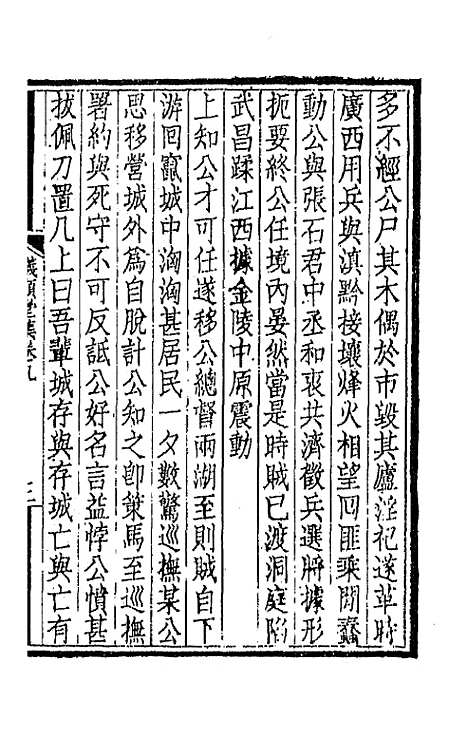 多不經公尸其木偶於市毀其廬淫祀遂革時
廣西用兵與滇黔接壤烽火相望回匪乘閒蠢
動公與張石君中丞和衷共濟徵兵選將據形
扼要終公任境內晏然當是時賊已渡洞庭陷
武昌蹂江西據金陵中原震動
上知公才可任遂移公總督兩湖至則賊自下
游回竄城中洶洶甚居民一夕數驚巡撫某公
思移營城外爲自脫計公知之卽策馬至巡撫
署約與死守不可反詆公好名言益悖公憤甚
拔佩刀置几上曰吾輩城存與存城亡與亡有
儀顧堂集卷九
三